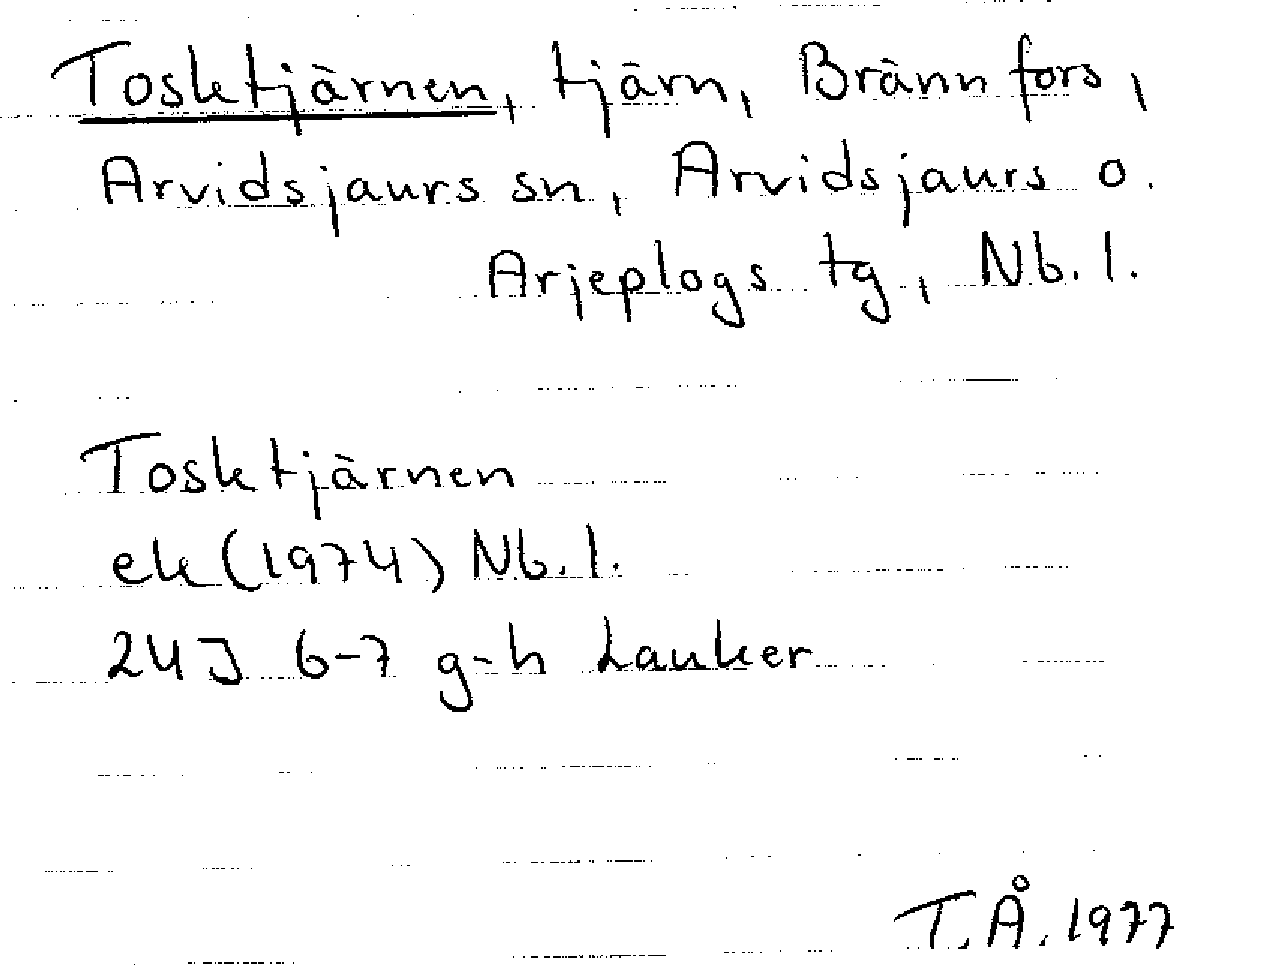 Tosktjärnen, tjärn, Brännfors,
Arvidsjaurs sn, Arvidsjaurs o.
Arjeplogs tg, Nb. l.
Tosktjärnen
ek (1974) Nb. l.
24J 6-7 g-h Lauker
T.Å. 1977